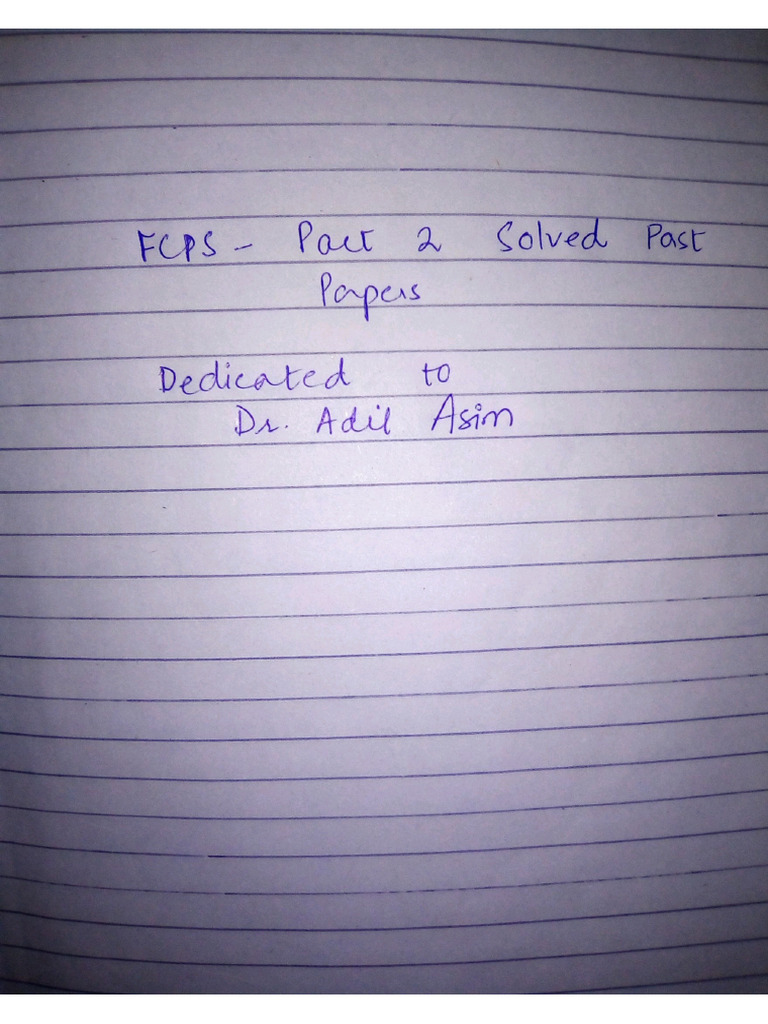 FCPS - Part 2 Solved Past
Papers
Dedicated to
Dr. Adil Asim